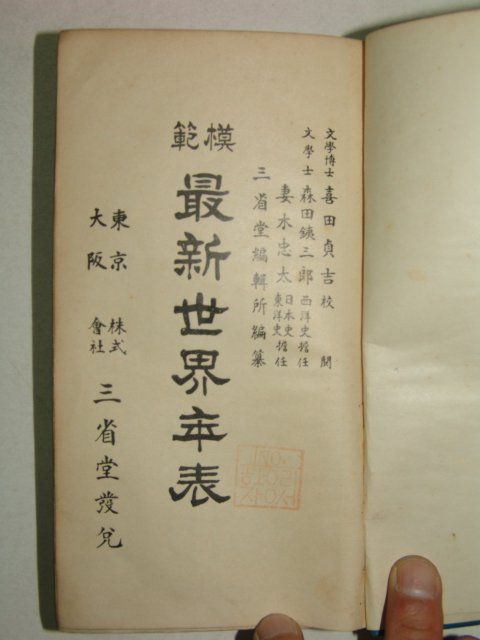 文學博士 喜田貞吉 校閱
文學士 森田銕三郎 西洋史擔任
妻木忠太 日本史 東洋史 擔任
三省堂編輯所編纂
模範
最新世界年表
東京
大阪
株式
會社
三省堂發兌